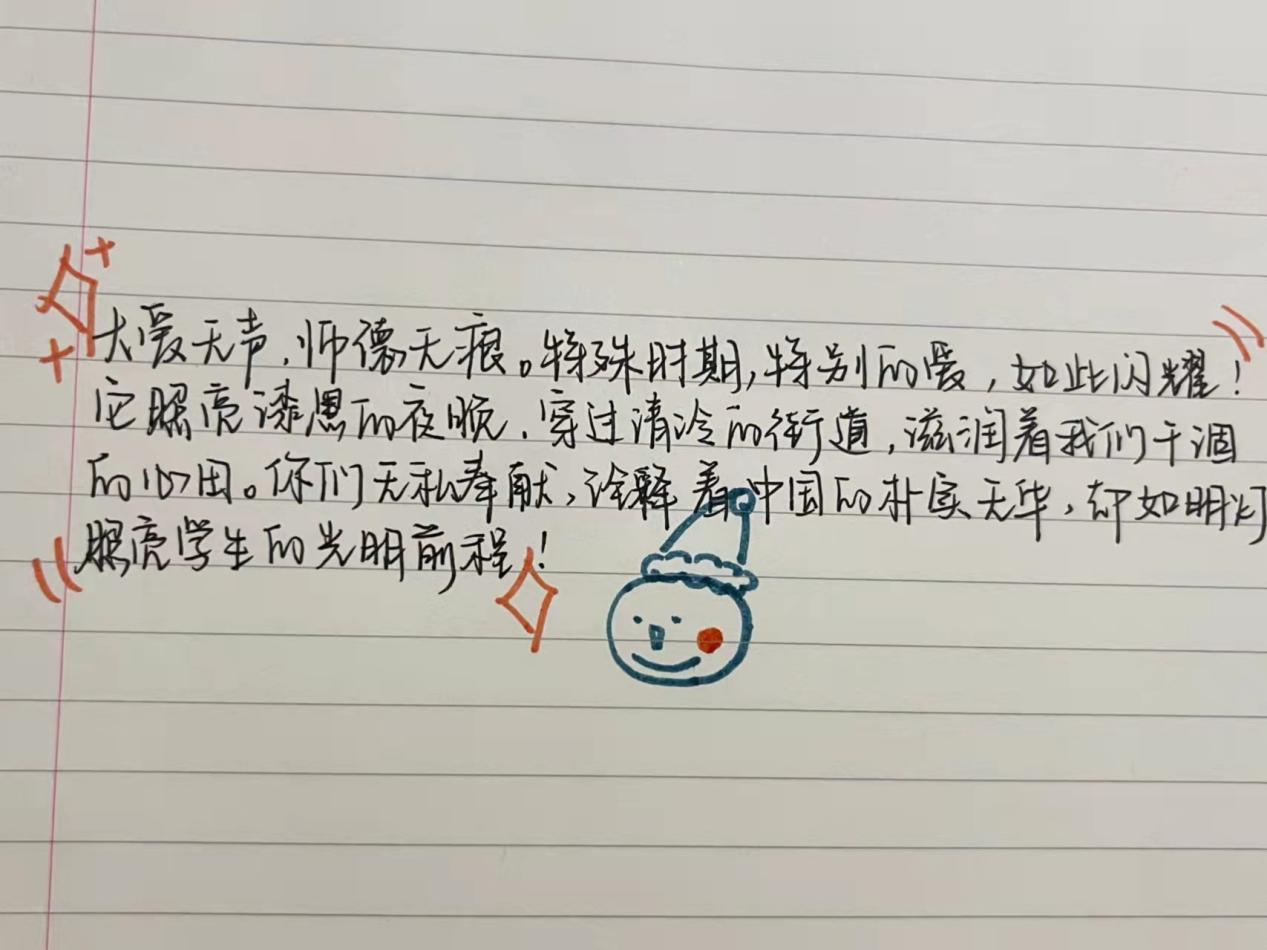 大爱无声，师德无痕。特殊时期，特别的爱，如此闪耀！
它照亮漆黑的夜晚，穿过清冷的街道，滋润着我们干涸
的心田。你们无私奉献，诠释着中国的朴实无华，却如明灯
照亮学生的光明前程！